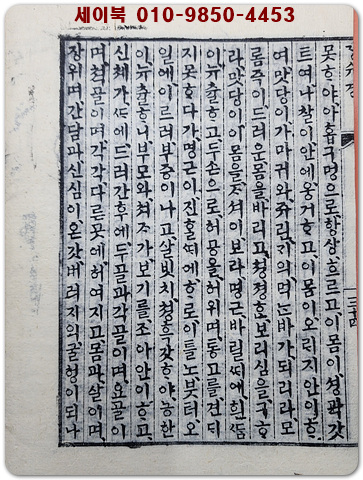 세이북 010-9850-4453
못ᄒᆞ야아홉구멍으로항상흐르고이몸이셩곽갓
트여나찰이안에웅거ᄒᆞ고이몸이오리지안이ᄒᆞ
여맛당이가마귀와쥬린ᄀᆡ의먹는바가되리라모
름즉이드러운몸을바리고쳥졍호보리심을구ᄒᆞ
라맛당이이몸을ᄌᆞ셔이보라명근바릴ᄯᅢ에흰ᄯᆞᆷ
이유츌ᄒᆞ고두손으로허공을허위며통고를견ᄃᆡ
지못ᄒᆞ다가명근이진ᄒᆞᆯᄯᅢ에ᄒᆞ로이틀노붓터오
일에이르러부증이나고살빗치쳥흑갓ᄒᆞ야농한
이유츌ᄒᆞ니부모와쳐ᄌᆞ가보기를조아안이ᄒᆞ고
신체가ᄯᅡ에드러간후에두골과각골이며요골이
며쳑골이며각각다른곳에허여지고몸과살이며
장위며간담과신심이온갓버러지의굴형이되나